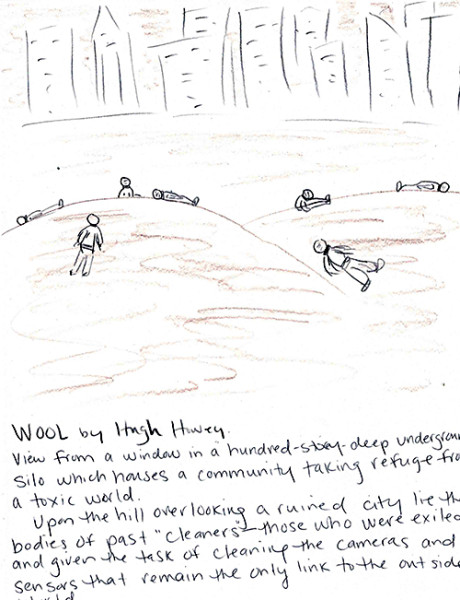 WOOL by Hugh Howey.
View from a window in a hundred-story-deep undergroun
silo which houses a community taking refuge fro
a toxic world.
Upon the hill overlooking a ruined city lie th
bodies of past "cleaners" – those who were exiled
and given the task of cleaning the cameras and
sensors that remain the only link to the outside